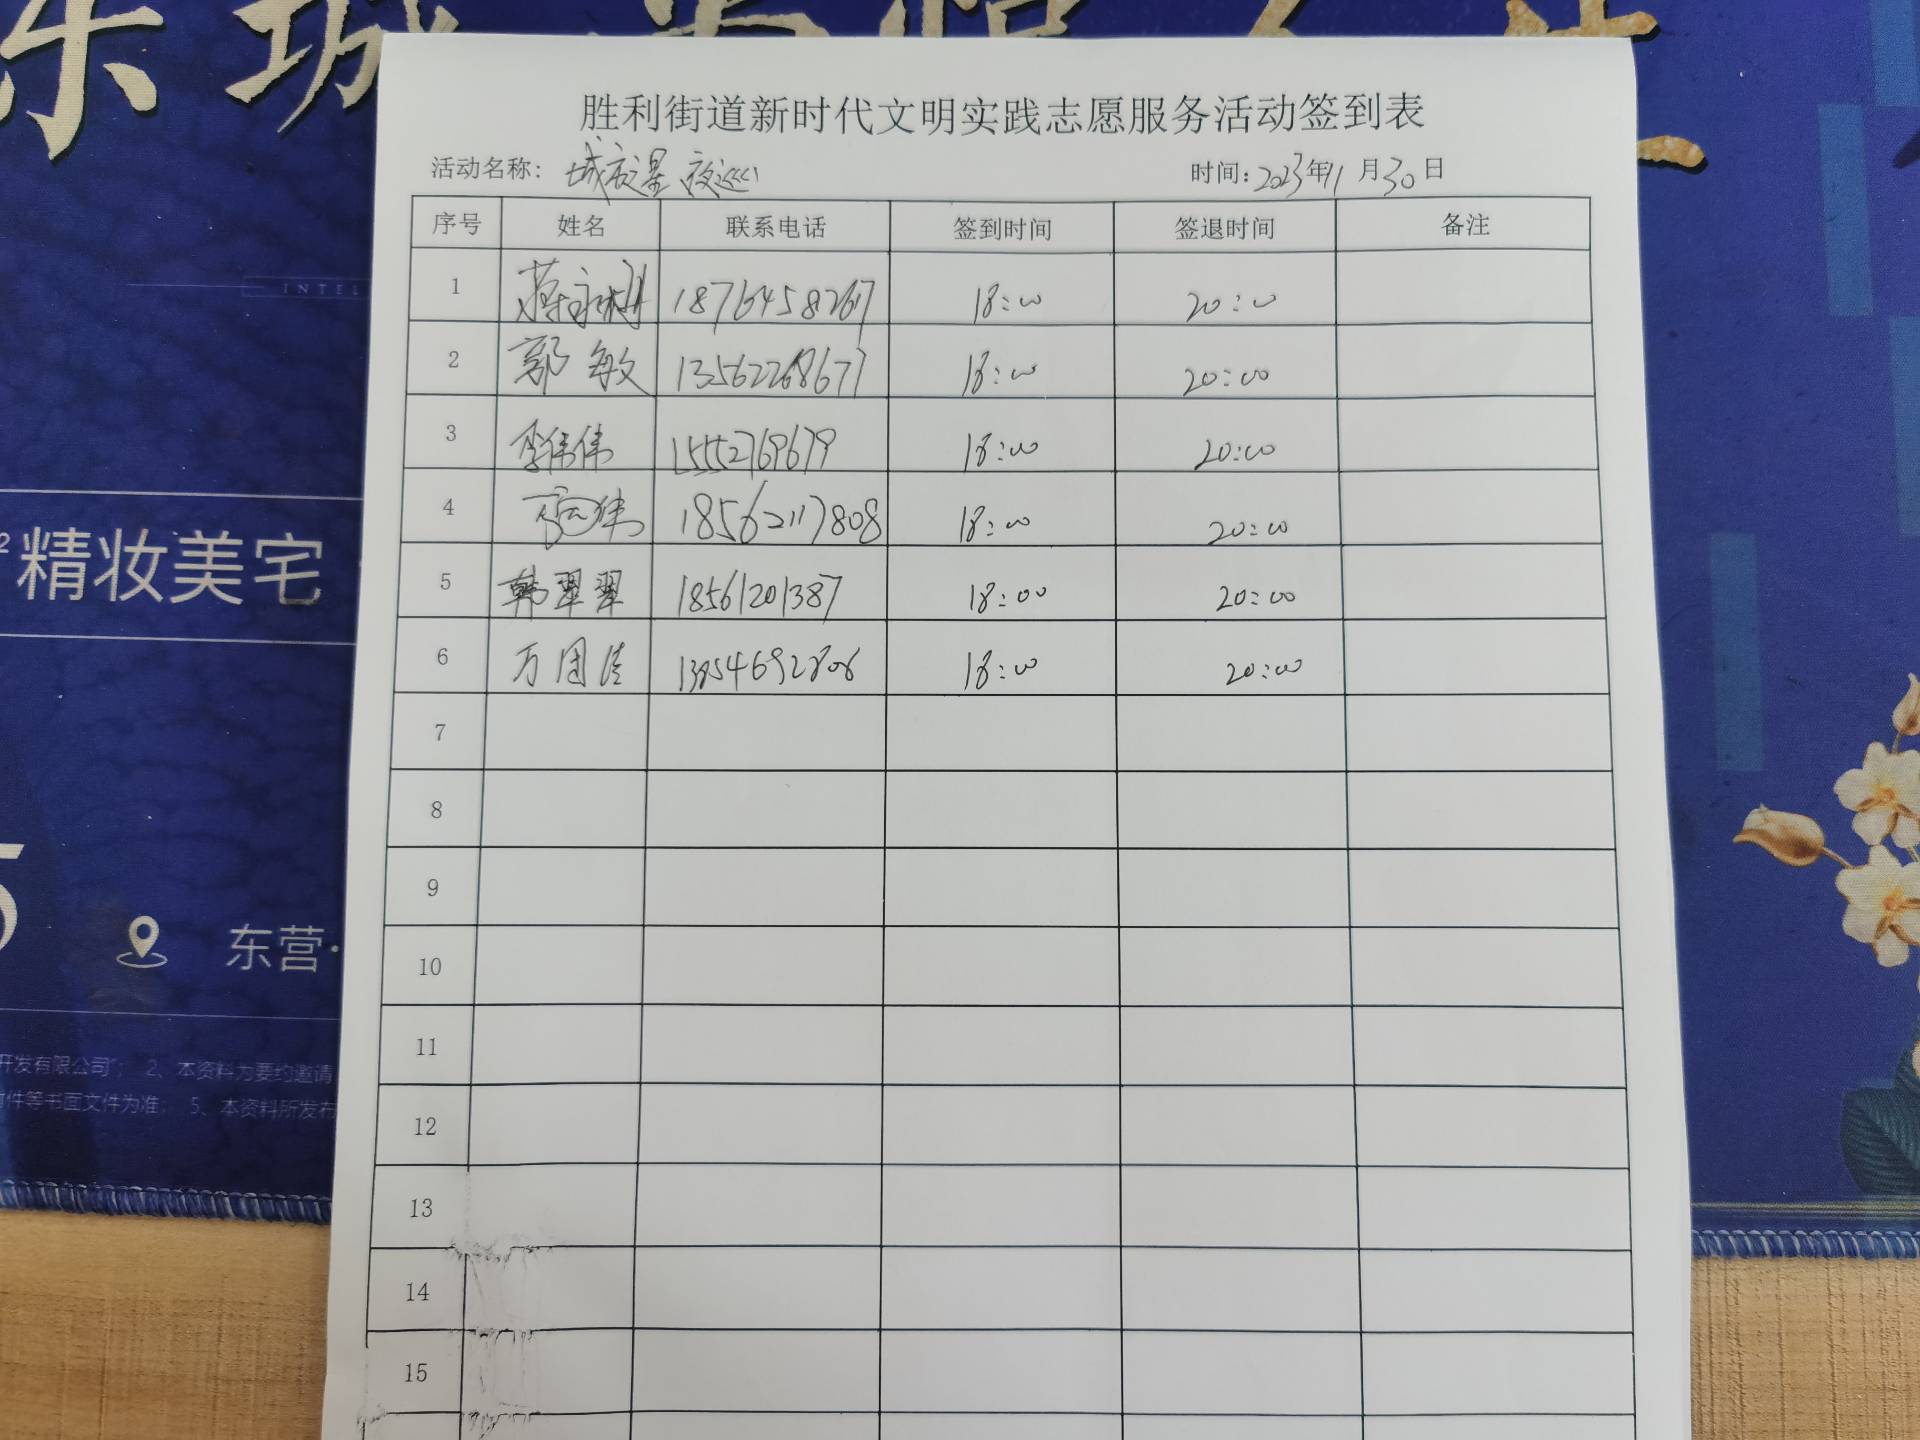 东城
胜利街道新时代文明实践志愿服务活动签到表
活动名称: 城市之星夜巡 时间:2023年11月30日
序号 姓名 联系电话 签到时间 签退时间 备注
1 1876458267 18:00 20:00
2 郭敏 13562268677 18:00 20:00
3 李伟伟 15552769679 18:00 20:00
4 18562117808 18:00 20:00
5 韩翠翠 18561201387 18:00 20:00
6 万国佳 13854692806 18:00 20:00
7
8
9
10
11
12
13
14
15
INTEL
精妆美宅
5
东营·
开发有限公司”; 2、本资料为要约邀请
件等书面文件为准; 5、本资料所发布